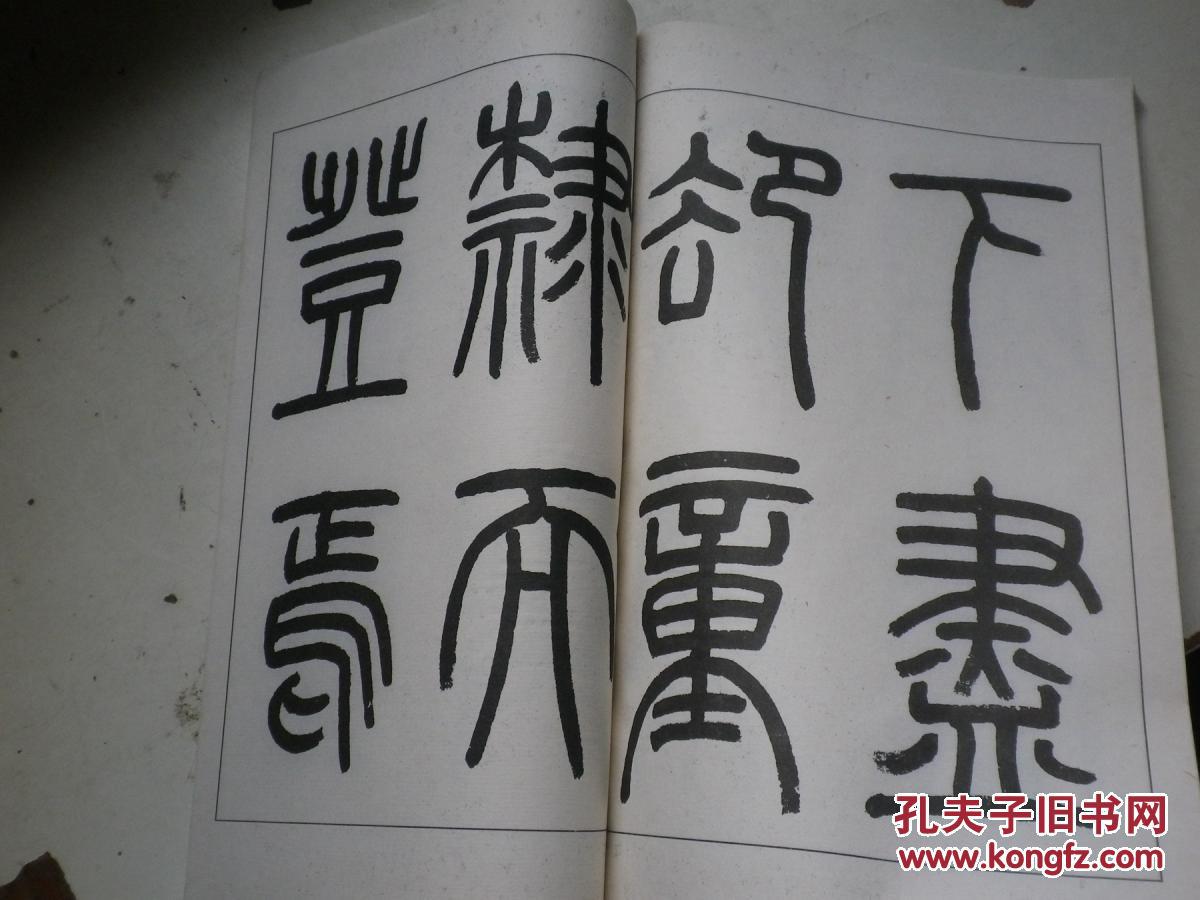 下盡
卻童
隸而
登焉
孔夫子旧书网
www.kongfz.com